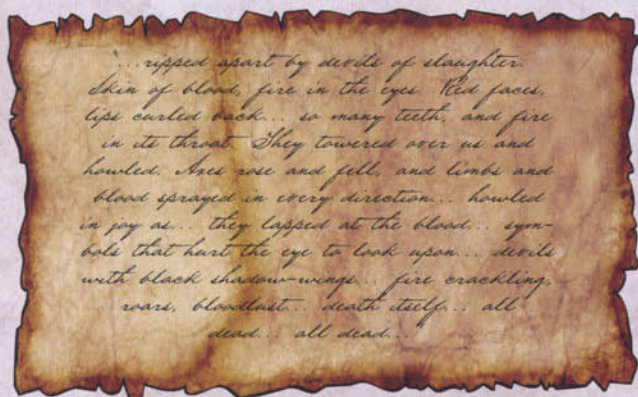 '...ripped apart by devils of slaughter.
Skin of blood, fire in the eyes. Red faces,
lips curled back... so many teeth, and fire
in its throat. They towered over us and
howled. Axes rose and fell, and limbs and
blood sprayed in every direction... howled
in joy as... they lapped at the blood... sym-
bols that hurt the eye to look upon... devils
with black shadow-wings... fire crackling,
roars, bloodlust... death itself... all
dead... all dead...